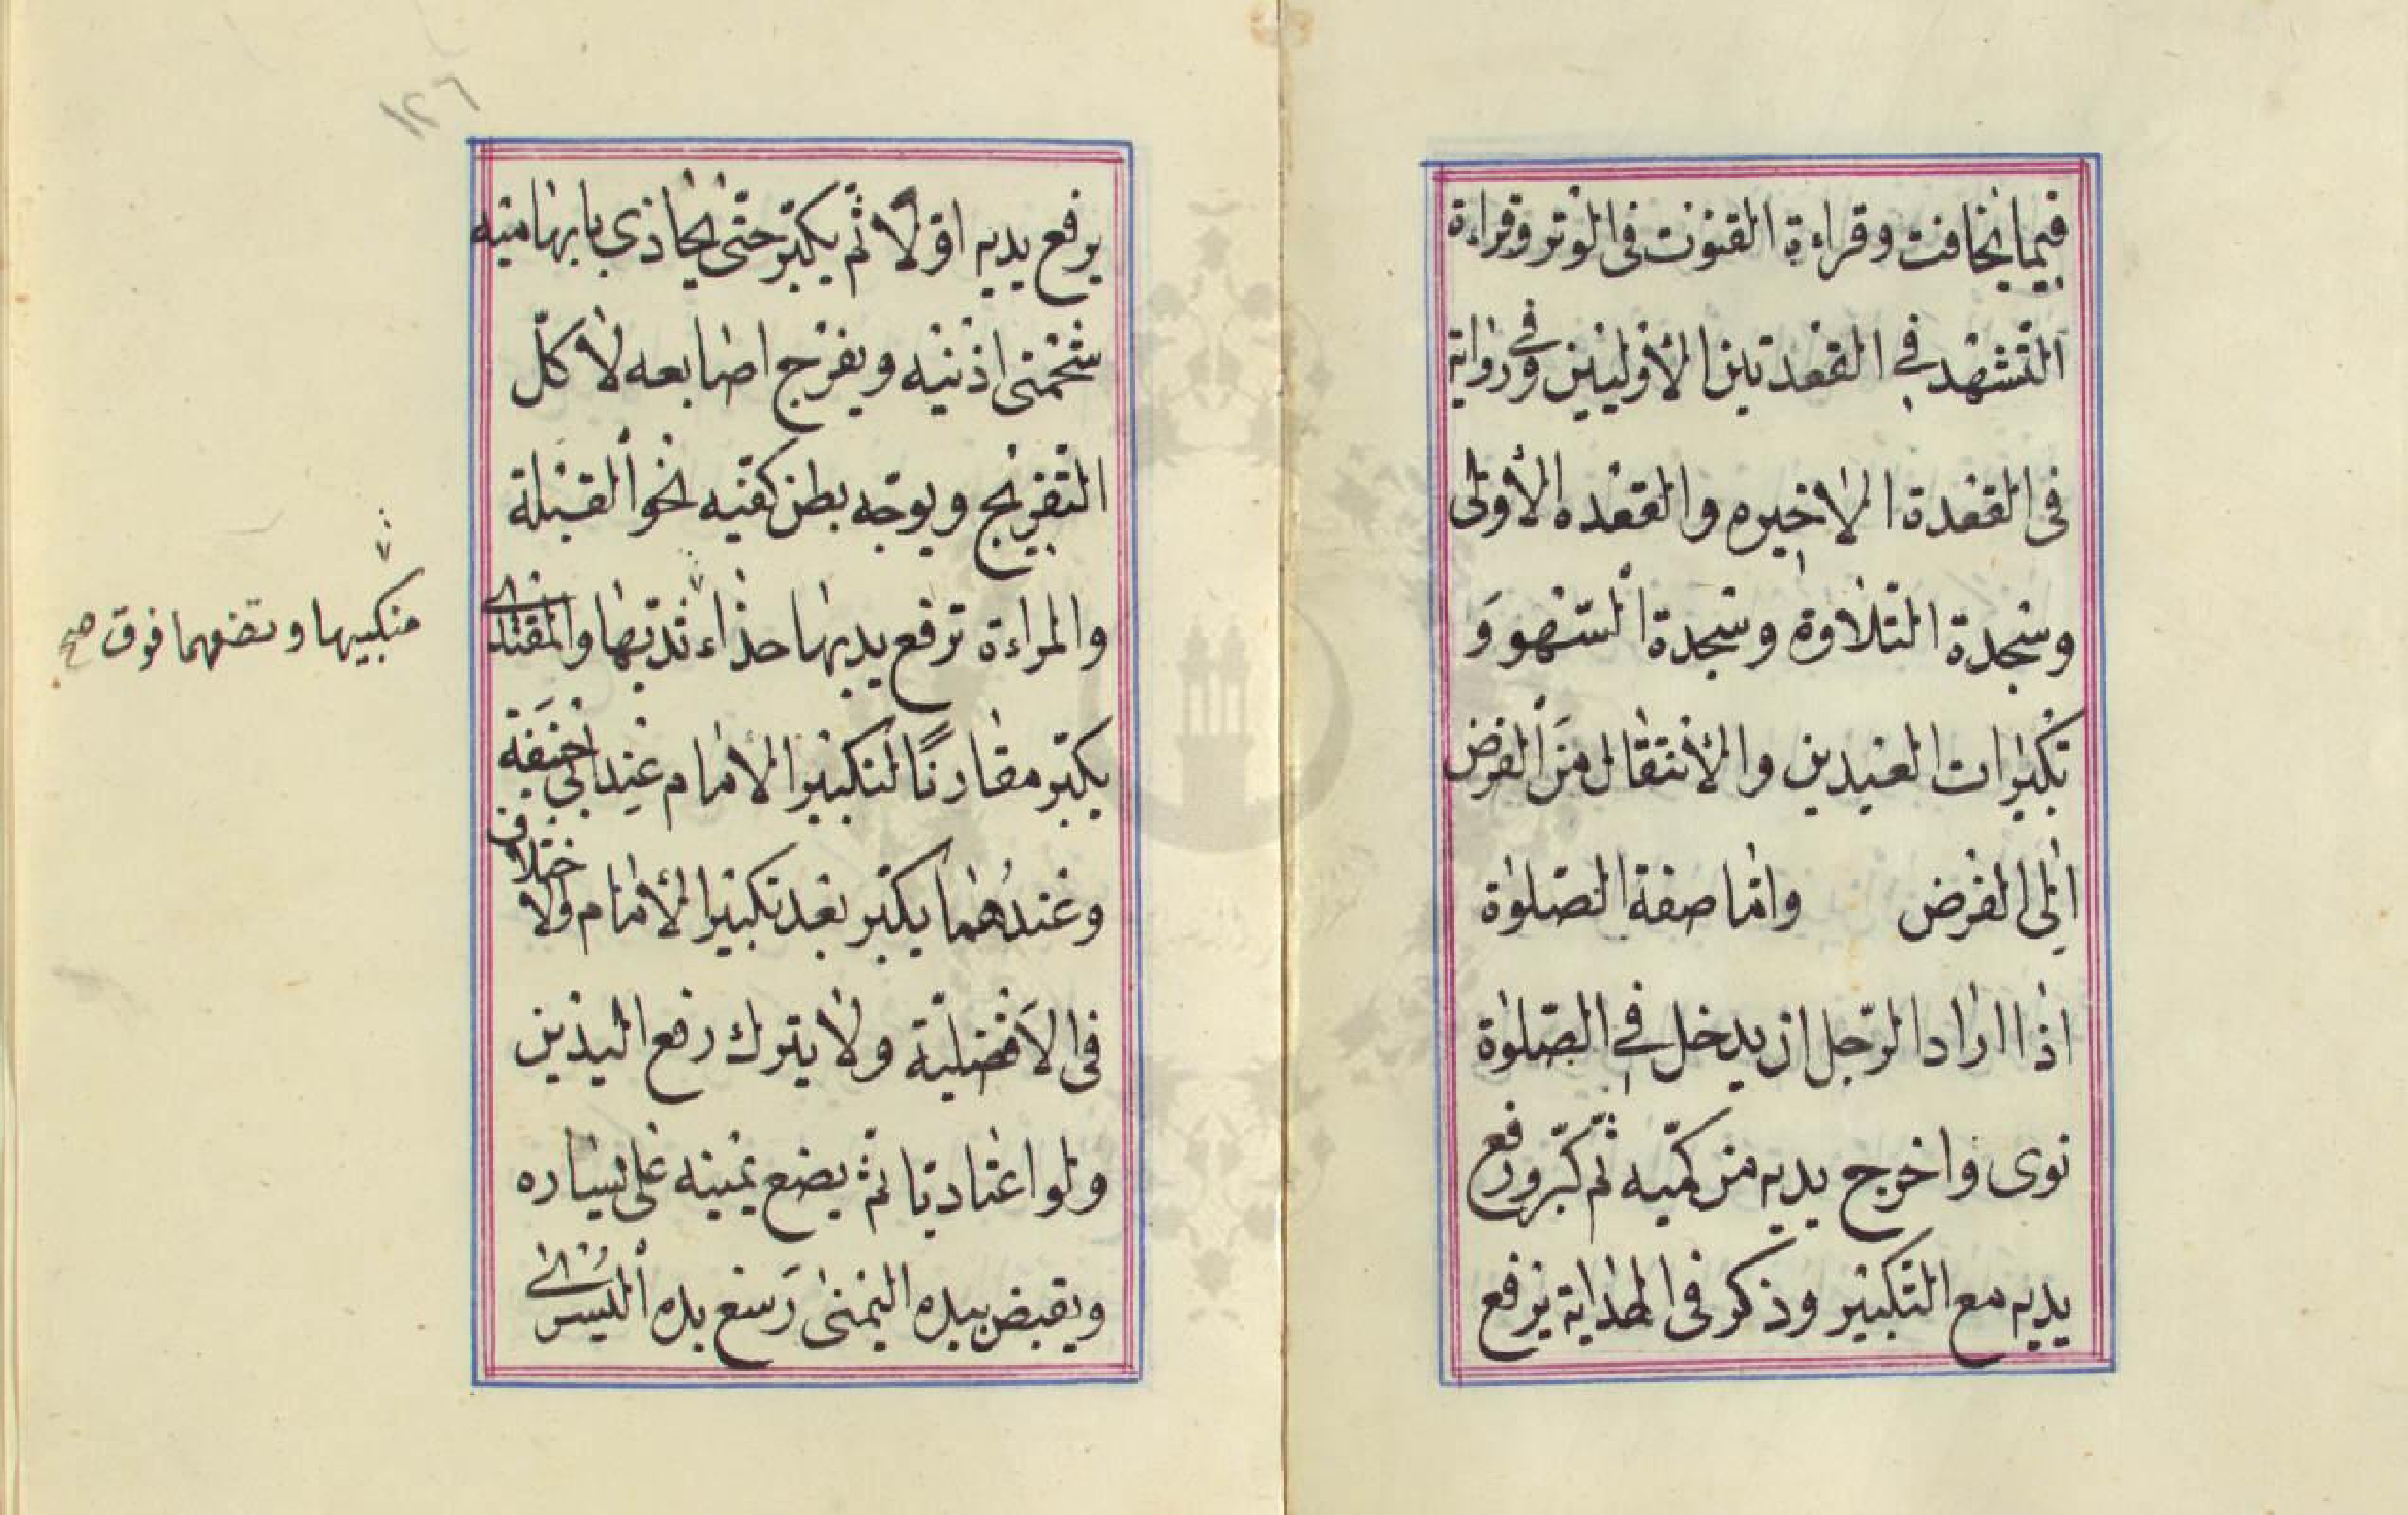 فيما يخافت وقراءة القنوت فى الوتر وقراءة
التشهد في القعدتين الأوليين وفى رواية
فى القعدة الاخيره والقعده الأولى
وسجدة التلاوة وسجدة السهو و
تكبيرات العيدين والأنتقال من الفرض
الى الفرض واما صفة الصلوة
اذا اراد الرّجل ان يدخل في الصّلوة
نوى واخرج يديه من كمّيه ثمّ كبّر ورفع
يديه مع التّكبير وذكر فى الهداية يرفع
١٢٦
يرفع يديه اوّلًا ثم يكبّر حتّى يحاذي بابهاميه
شحمتى اذنيه ويفرج اصابعه لا كلّ
التفريج ويوجّه بطن كفّيه نحو القبلة
والمراءة ترفع يديها حذاء ثدييها والمقتدى
منكبيها وتضعهما فوق صح
يكبّر مقارنًا لتكبير الأمام عند ابى حنيفة
وعندهما يكبّر بعد تكبير الأمام ولا خلاف
فى الأفضليّة ولا يترك رفع اليدين
ولو اعتاد يا ثم يضع يمينه على يساره
ويقبض بيده اليمنى رسغ يده اليسرى